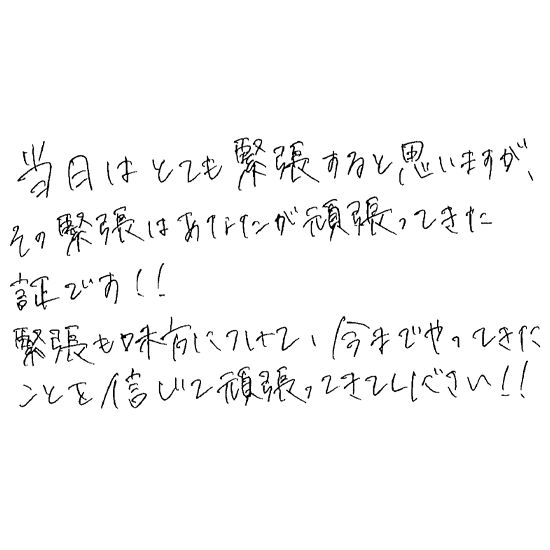 当日はとても緊張すると思いますが、
その緊張はあなたが頑張ってきた
証です!!
緊張も味方につけて、今までやってきた
ことを信じて頑張ってきてください!!